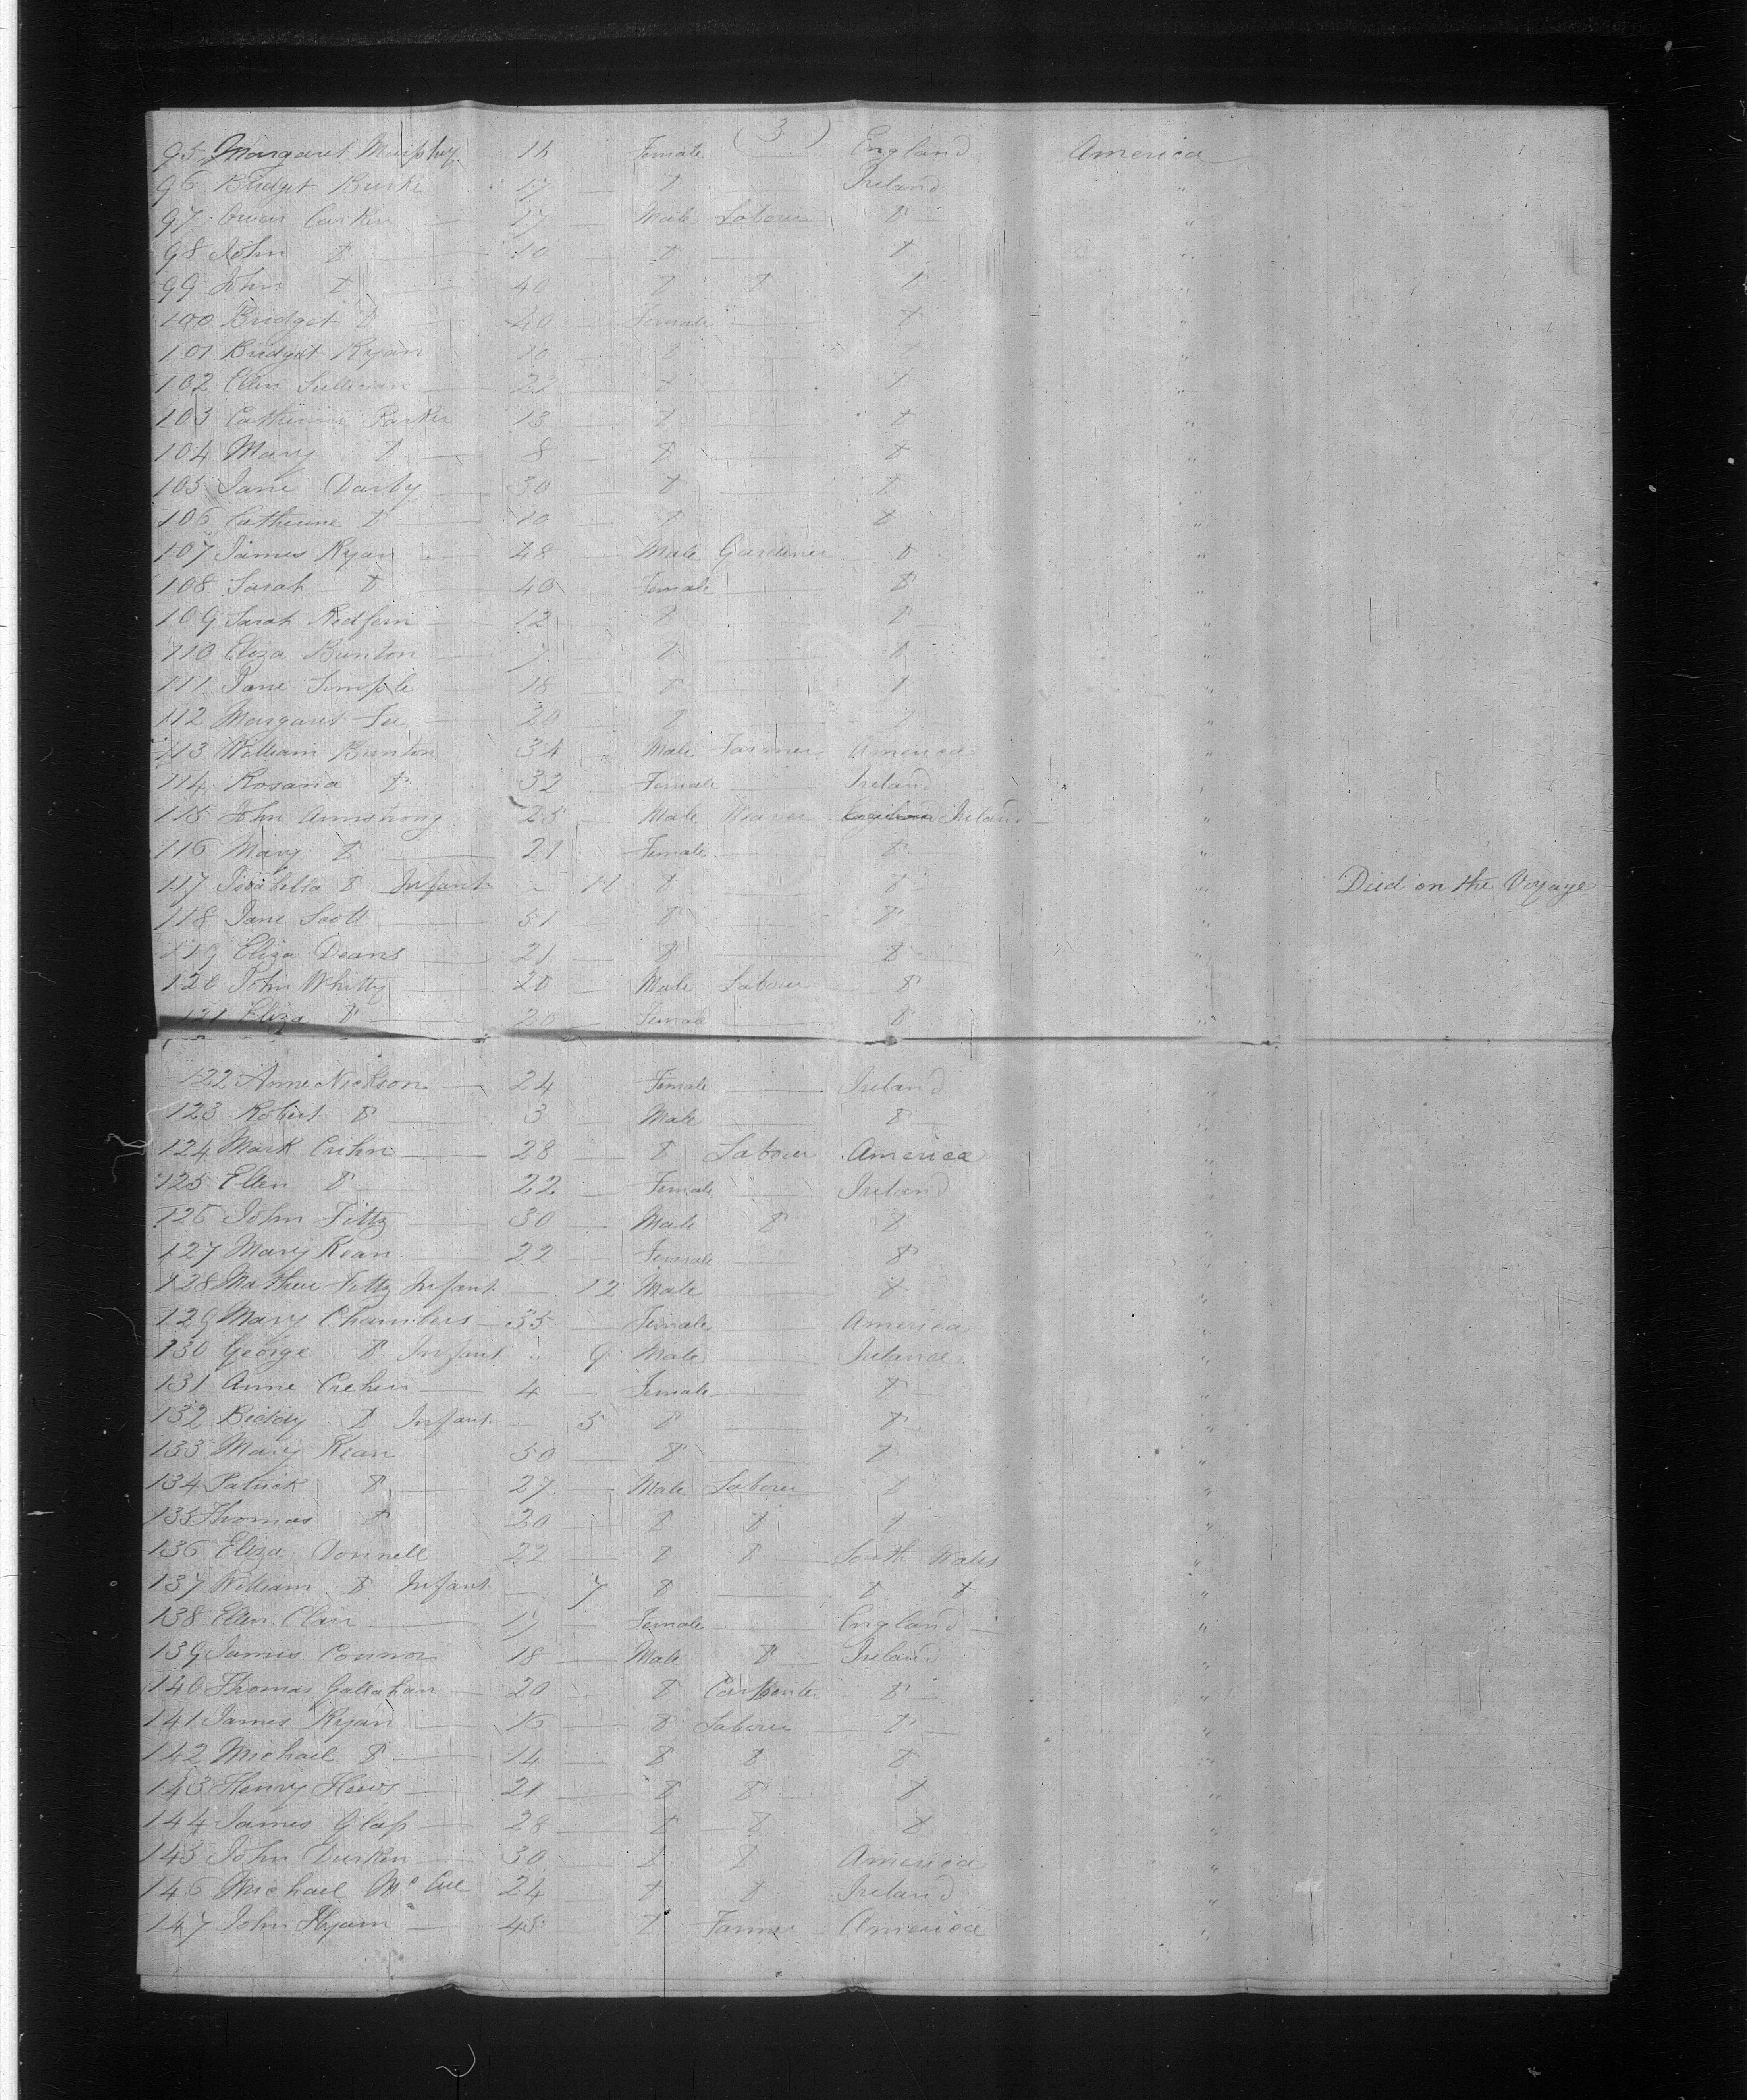 (3)
95 Margaret Murphy 14 Female England America
96 Bridget Burke 17 — " — Ireland "
97 Owen Carken — 17 — Male Laborer " — "
98 John " — 10 — " — " "
99 John " — 40 — " " " "
100 Bridget " — 40 — Female — " "
101 Bridget Ryan 10 — " — " "
102 Ellen Sullivan — 22 — " — " "
103 Catherine Parker 13 — " — " "
104 Mary " — 8 — " — " "
105 Jane Darby — 30 — " — " "
106 Catherine " — 10 — " — " "
107 James Ryan — 28 — Male Gardener — " "
108 Sarah — " 40 Female — " "
109 Sarah Redfern — 12 — " — " "
110 Eliza Bunton — 7 — " — " "
111 Jane Simple — 18 — " — " "
112 Margaret Fee — 20 — " — " "
113 William Bunton 34 — Male Farmer America "
114 Rosana " 32 — Female — Ireland "
115 John Armstrong 25 — Male Weaver Ireland — "
116 Mary " — 21 Female — " "
117 Isabella " Infant — 11 " — " " Died on the Voyage
118 Jane Scott — 51 — " — " — "
119 Eliza Deans — 21 — " — " — "
120 John Whitty — 20 — Male Laborer — " "
121 Eliza " — 20 — Female — " "
122 Anne Nickson — 24 Female — Ireland "
123 Robert " — 3 — Male — " — "
124 Mark Crehn — 28 — " Laborer America "
125 Ellen " — 22 — Female — Ireland "
126 John Fitty — 30 — Male " " "
127 Mary Kean — 22 — Female — " "
128 Mathew Fitty Infant — 12 Male — " "
129 Mary Chambers — 35 — Female — America "
130 George " Infant " 9 Male — Ireland "
131 Anne Crehen — 4 — Female — " — "
132 Biddy " Infant — 5 " — " "
133 Mary Kean 50 — " — " "
134 Patrick " — 27 — Male Laborer " "
135 Thomas " — 20 — " " " "
136 Eliza Donnell 22 — " " — South Wales "
137 William " Infant — 7 " — " " "
138 Ellen Clair — 17 — Female — England — "
139 James Connor 18 — Male " — Ireland "
140 Thomas Gallahan — 20 — " Carpenter " — "
141 James Ryan — 16 — " Laborer — " — "
142 Michael " — 14 — " " " "
143 Henry Hews — 21 — " " — " "
144 James Glass — 28 — " — " " "
145 John Durken — 30 — " " America "
146 Michael McCue 24 — " " Ireland "
147 John Ryam — 45 — " Farmer America "